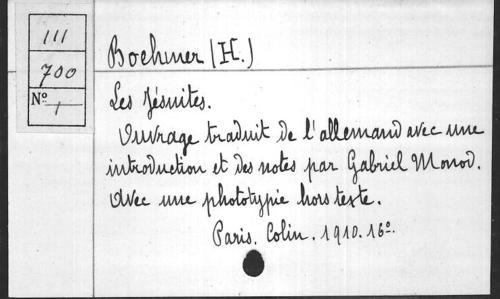 111
700
Nº 1
Boehmer (H.)
Les Jésuites.
Ouvrage traduit de l'allemand avec une
introduction et des notes par Gabriel Monod.
Avec une phototypie hors texte.
Paris. Colin. 1910. 16º.